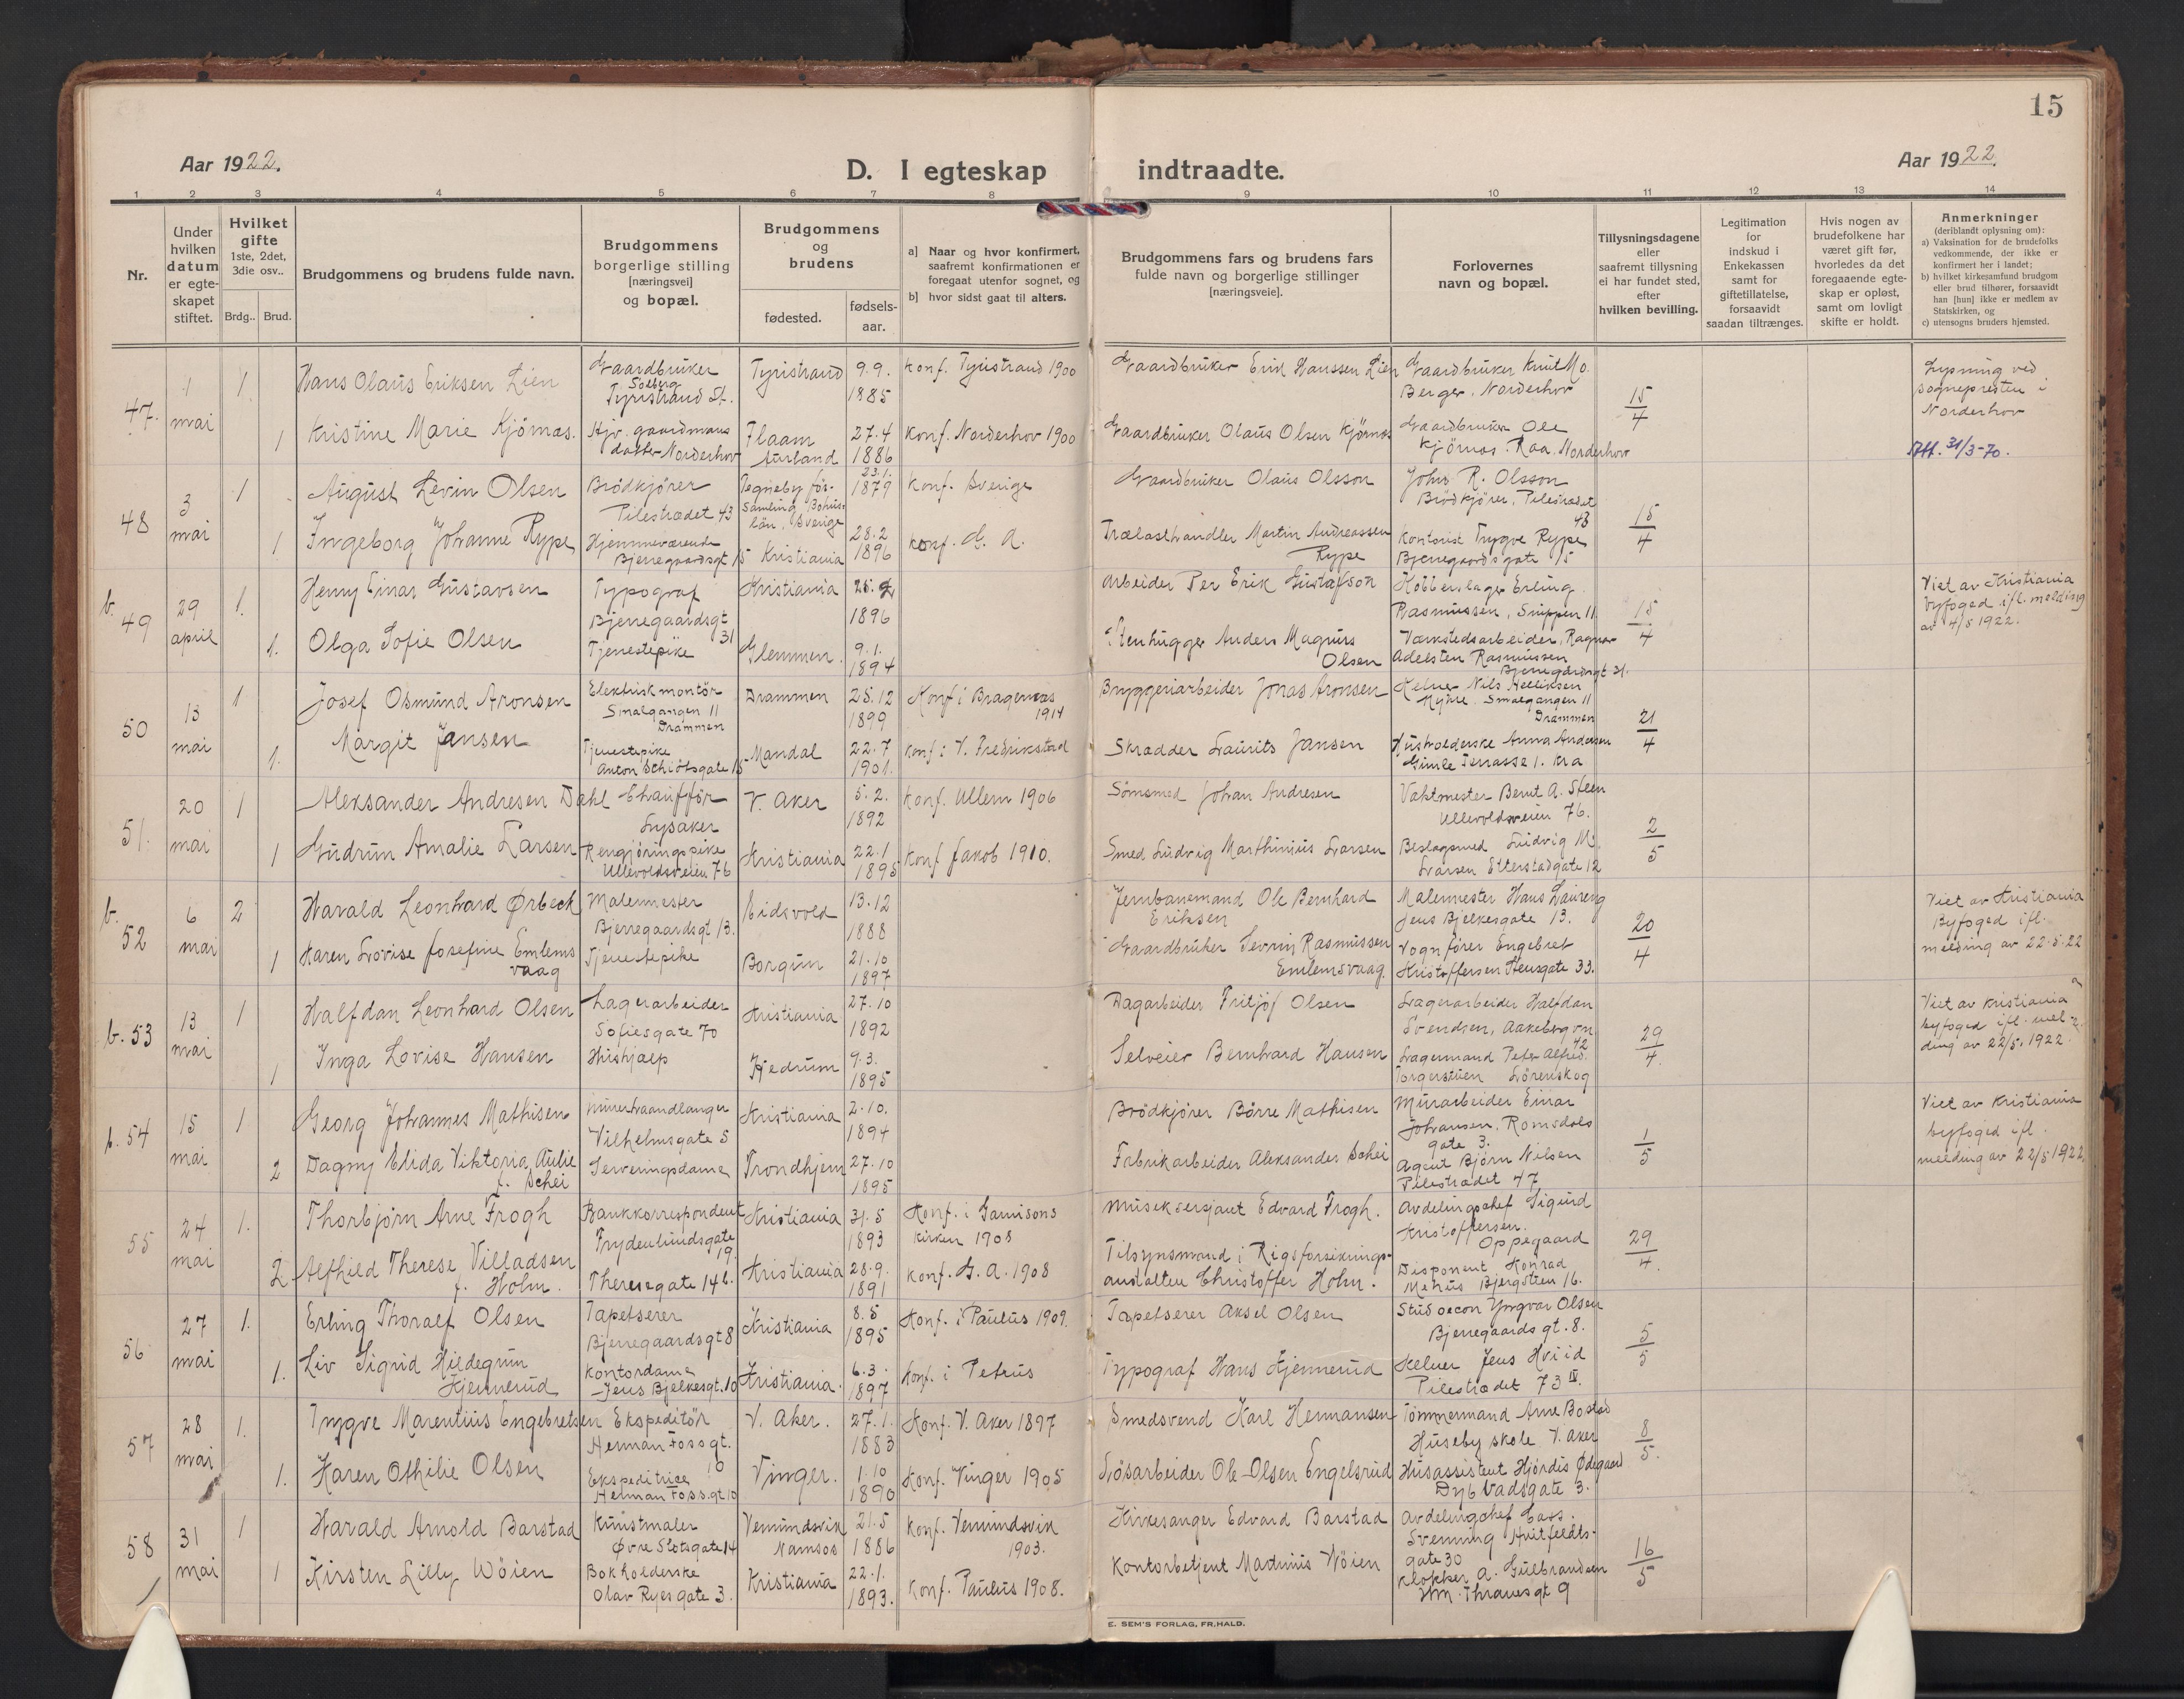 15
Aar 1922.
D. I egteskap indtraadte.
Aar 1922.
1 2 3 4 5 6 7 8 9 10 11 12 13 14
Nr.
Under hvilken datum er egteskapet stiftet.
Hvilket gifte 1ste, 2det, 3die osv..
Brdg.. Brud.
Brudgommens og brudens fulde navn.
Brudgommens borgerlige stilling [næringsvei] og bopæl.
Brudgommens og brudens
fødested.
fødsels-aar.
a] Naar og hvor konfirmert, saafremt konfirmationen er foregaat utenfor sognet, og
b] hvor sidst gaat til alters.
Brudgommens fars og brudens fars fulde navn og borgerlige stillinger [næringsveie].
Forlovernes navn og bopæl.
Tillysningsdagene eller saafremt tillysning ei har fundet sted, efter hvilken bevilling.
Legitimation for indskud i Enkekassen samt for giftetillatelse, forsaavidt saadan tiltrænges.
Hvis nogen av brudefolkene har været gift før, hvorledes da det foregaaende egteskap er opløst, samt om lovligt skifte er holdt.
Anmerkninger (deriblandt oplysning om):
a) Vaksination for de brudefolks vedkommende, der ikke er konfirmert her i landet;
b) hvilket kirkesamfund brudgom eller brud tilhører, forsaavidt han [hun] ikke er medlem av Statskirken, og
c) utensogns bruders hjemsted.
47. 1 mai 1 Hans Olaus Eriksen Lien Gaardbruker Solberg Tyristrand St. Tyristrand 9.9. 1885 Konf. Tyristrand 1900 Gaardbruker Erik Hanssen Lien Gaardbruker Knut Mo Berger, Norderhov 15/4 Lysning ved sognepresten i Norderhov
1 Kristine Marie Kjörnæs. Hjv. gaardmans datter Norderhov Flaam Aurland 27.4 1886 Konf. Norderhov 1900 Gaardbruker Olaus Olsen Kjørnæs Gaardbruker Ole Kjørnæs. Raa. Norderhov Att. 31/3-70.
48 3 mai 1 August Levin Olsen Brödkjörer Pilestrædet 43 Tegneby församling Bohuslän, Sverige 23.1. 1879 Konf. Sverige Gaardbruker Olaus Olsson John R. Olsson Brödkjörer, Pilestrædet 43 15/4
1 Ingeborg Johanne Rype Hjemmeværende Bjerregaardsgt 15 Kristiania 28.2 1896 Konf. G. A. Trælasthandler Martin Andreassen Rype Kontorist Trygve Rype Bjerregaardsgate 15
b. 49 29 april 1. Henry Einar Gustavsen Typograf Bjerregaardsgt 31 Kristiania 1896 Arbeider Per Erik Gustafson Kobberslager Erling Rasmussen, Snippen 11 15/4 Viet av Kristiania byfoged ifl. melding av 4/5 1922.
1. Olga Sofie Olsen Tjenestepike Glemmen. 9.1. 1894 Stenhugger Anders Magnus Olsen Værkstedsarbeider Ragnar Adelsten Rasmussen Bjerregaardsgt 31.
50 13 mai 1 Josef Osmund Aronsen Elektrisk montör Smalgangen 11 Drammen Drammen 25.12 1899 Konf i Bragernæs 1914 Bryggeriarbeider Jonas Aronsen Kelner Nils Helliksen Myhre. Smalgangen 11 Drammen 21/4
1. Margit Jansen Tjenestepike Anton Schiötsgate 15 Mandal 22.7 1901. Konf: V. Fredrikstad Skrædder Laurits Jansen Husholderske Anna Andersen Gimle Terrasse 1. Kra
51. 20 mai 1 Aleksander Andresen Dahl Chauffør Lysaker V. Aker 5.2. 1892 Konf. Ullern 1906 Sömsmed Johan Andresen Vaktmester Bernt A. Steen Ullevoldsveien 76. 2/5
1 Gudrun Amalie Larsen Rengjöringspike Ullevoldsveien 76 Kristiania 22.1 1895 Konf Jakob 1910. Smed Ludvig Marthinius Larsen Beslagsmed Ludvig M. Larsen Etterstadgate 12
b. 52 6 mai 2 Harald Leonhard Ørbeck Malermester Bjerregaardsgt 13. Eidsvold 13.12 1888 Jernbanemand Ole Bernhard Eriksen Malermester Hans Laureng Jens Bjelkesgate 13. 20/4 Viet av Kristiania Byfoged ifl. melding av 22.5.22
1 Karen Lovise Josefine Emlemsvaag Tjenestepike Borgun 21.10 1897 Gaardbruker Sevrin Rasmussen Emlemsvaag. Vognfører Engebret Kristoffersen Stensgate 33.
b. 53 13 mai 1 Halfdan Leonhard Olsen Lagerarbeider Sofiesgate 70 Kristiania 27.10 1892 Dagarbeider Fritjof Olsen Lagerarbeider Halfdan Svendsen, Aakebergvn 42 29/4. Viet av Kristiania byfoged ifl. melding av 22/5. 1922.
1 Inga Lovise Hansen Hushjælp 9.3. 1895 Selveier Bernhard Hansen Lagermand Peter Alfred. Torgerstuen Lörenskog
b. 54 15 mai 1 Georg Johannes Mathisen Murerhaandlanger Vilhelmsgate 5 Kristiania 2.10. 1894 Brödkjörer Börre Mathisen Murarbeider Einar Johansen, Romsdalsgate 3. 1/5 Viet av Kristiania byfoged ifl. melding av 22/5 1922.
2 Dagny Elida Viktoria Aulie f. Schei Serveringsdame Trondhjem 27.10 1895 Fabrikarbeider Aleksander Schei Agent Björn Nilsen Pilestrædet 47
55 24 mai 1. Thorbjörn Arne Frogh Bankkorrespondent Frydenlundsgate 19. Kristiania 31.5 1893 Konf. i Garnisonskirken 1908 Musiksersjant Edvard Frogh. Avdelingschef Sigurd Kristoffersen. Oppegaard 29/4.
2 Alfhild Therese Villadsen f. Holm. Theresegate 14 b. Kristiania 28.9. 1891 Konf. G. A. 1908 Tilsynsmand i Rigsforsikringsanstalten Christoffer Holm. Disponent Konrad Mehus Bjergstien 16.
56 27 mai 1. Erling Thoralf Olsen Tapetserer Bjerregaardsgt 8 Kristiania 8.5 1895 Konf. i Paulus 1909. Tapetserer Aksel Olsen Stud oecon Yngvar Olsen Bjerregaards gt. 8. 5/5
1. Liv Sigrid Hildegunn Hjennerud Kontordame Jens Bjelkesgt. 10 Kristiania. 6.3. 1897 Konf. i Petrus Typograf Hans Hjennerud Kelner Jens Hviid Pilestrædet 73 IV.
57 28 mai 1. Trygve Marentius Engebretsen Ekspeditör Herman Foss gt. 10 V. Aker. 27.1. 1883 Konf. V. Aker 1897 Smedsvend Karl Hermansen Tömmermand Arne Bostad Huseby skole V. Aker 8/5.
1. Karen Othilie Olsen Ekspeditrice Herman Foss. gt 10 Vinger. 1.10 1890 Konf. Vinger 1905 Lösarbeider Ole Olsen Engelsrud Husassistent Hjördis Ødegaard Dybvadsgate 3.
58 31 mai 1 Harald Arnold Barstad Kunstmaler Øvre Slotsgate 14 Vemundsvik Namsos 21.5 1886 Konf. Vemundsvik 1903. Kirkesanger Edvard Barstad Avdelingchef Svenning Huitfeldtsgate 30 16/5
1 Kirsten Lilly Wöien Bokholderske Olav Ryes gate 3. Kristiania 22.1. 1893. Konf. Paulus 1908. Kontorbetjent Martinius Wöien Klokker A. Gulbrandsen Wm. Thranesgt 9
E. SEM'S FORLAG, FR.HALD.